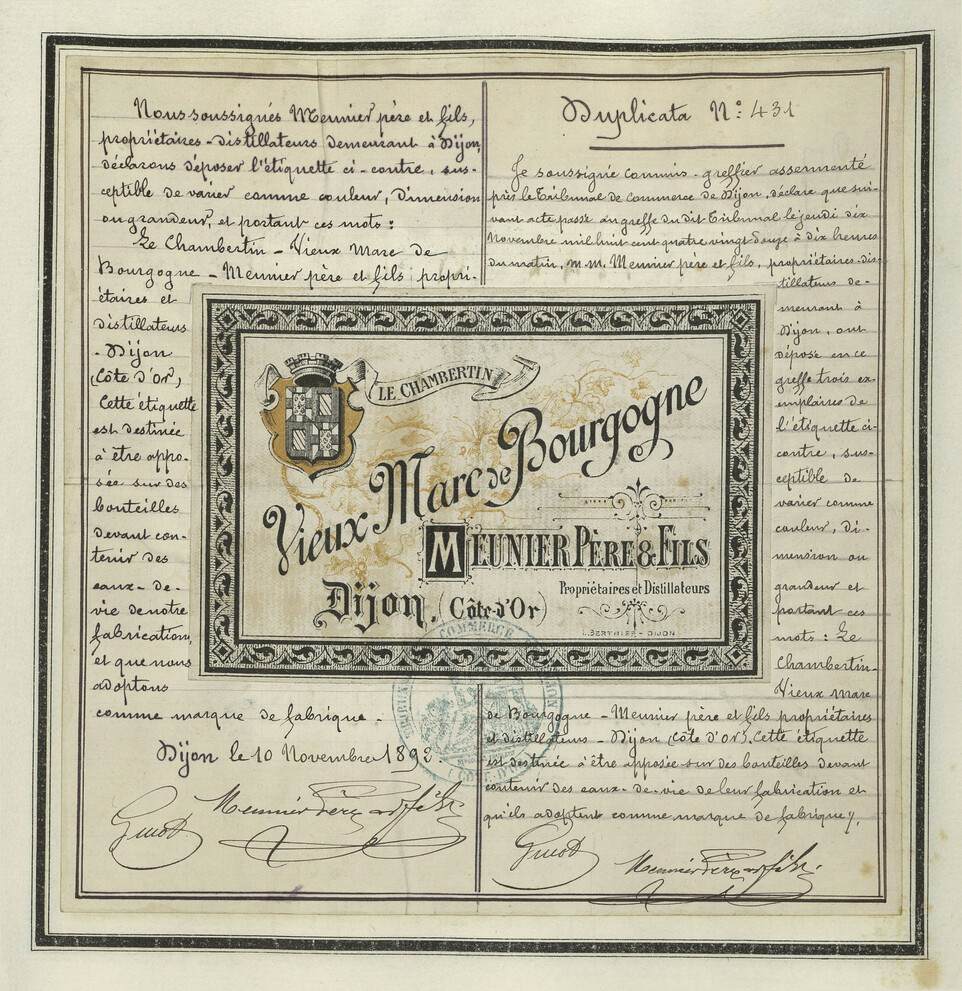 Nous soussignés Meunier père et fils,
propriétaires-distillateurs demeurant à Dijon,
déclarons déposer l'étiquette ci-contre, sus-
ceptible de varier comme couleur, dimension
ou grandeur, et portant ces mots :
Le Chambertin - Vieux Marc de
Bourgogne - Meunier père et fils propri-
étaires et
distillateurs
- Dijon
(Côte d'Or),
Cette étiquette
est destinée
à être appo-
sée sur des
bouteilles
devant con-
tenir des
eaux-de-
vie de notre
fabrication,
et que nous
adoptons
comme marque de fabrique -
Dijon le 10 Novembre 1892.
Guiot
Meunier Père et fils
LE CHAMBERTIN
Vieux Marc de Bourgogne
MEUNIER PÈRE & FILS
Propriétaires et Distillateurs
Dijon. (Côte-d'Or)
L. BERTHIER - DIJON
TRIBUNAL COMMERCE DIJON
(CÔTE-D'OR)
Duplicata N° 431
Je soussigné commis-greffier assermenté
près le Tribunal de Commerce de Dijon, déclare que sui-
vant acte passé au greffe du dit Tribunal le jeudi dix
Novembre mil huit cent quatre vingt douze à dix heures
du matin, M.M. Meunier père et fils, propriétaires-dis-
tillateurs de-
meurant à
Dijon, ont
déposé en ce
greffe trois ex-
emplaires de
l'étiquette ci-
contre, sus-
ceptible de
varier comme
couleur, di-
mension ou
grandeur et
portant ces
mots : Le
Chambertin-
Vieux Marc
de Bourgogne - Meunier père et fils propriétaires
et distillateurs - Dijon (Côte d'Or). Cette étiquette
est destinée à être apposée sur des bouteilles devant
contenir des eaux-de-vie de leur fabrication et
qu'ils adoptent comme marque de fabrique.
Guiot
Meunier Père et fils